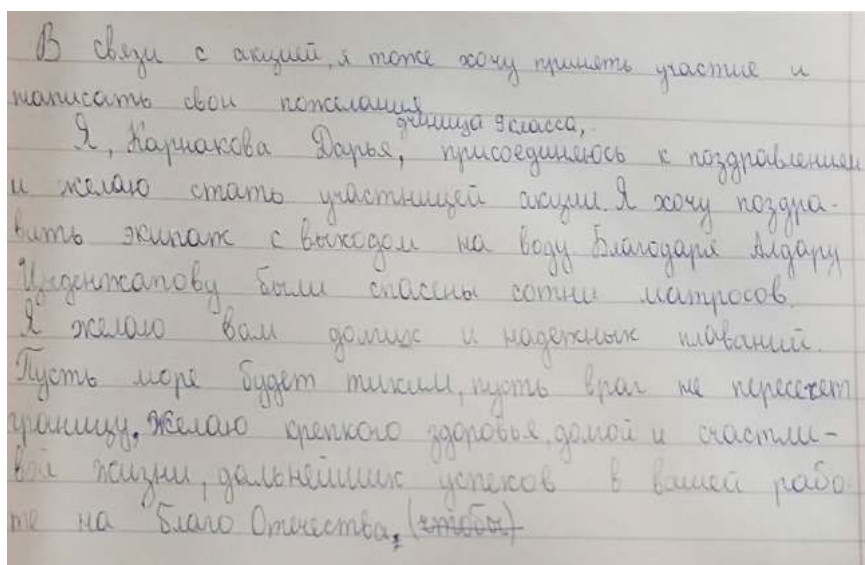 В связи с акцией, я тоже хочу принять участие и
написать свои пожелания
ученица 9 класса,
Я, Карнакова Дарья, присоединяюсь к поздравлением
и желаю стать участницей акции. Я хочу поздра-
вить экипаж с выходом на воду Благодаря Алдару
Цыденжапову были спасены сотни матросов.
Я желаю вам долгих и надежных плаваний.
Пусть море будет тихим, пусть враг не пересечет
границу. Желаю крепкого здоровья, домой и счастли-
вой жизни, дальнейших успехов в вашей рабо-
те на благо Отечества. (чтобы)